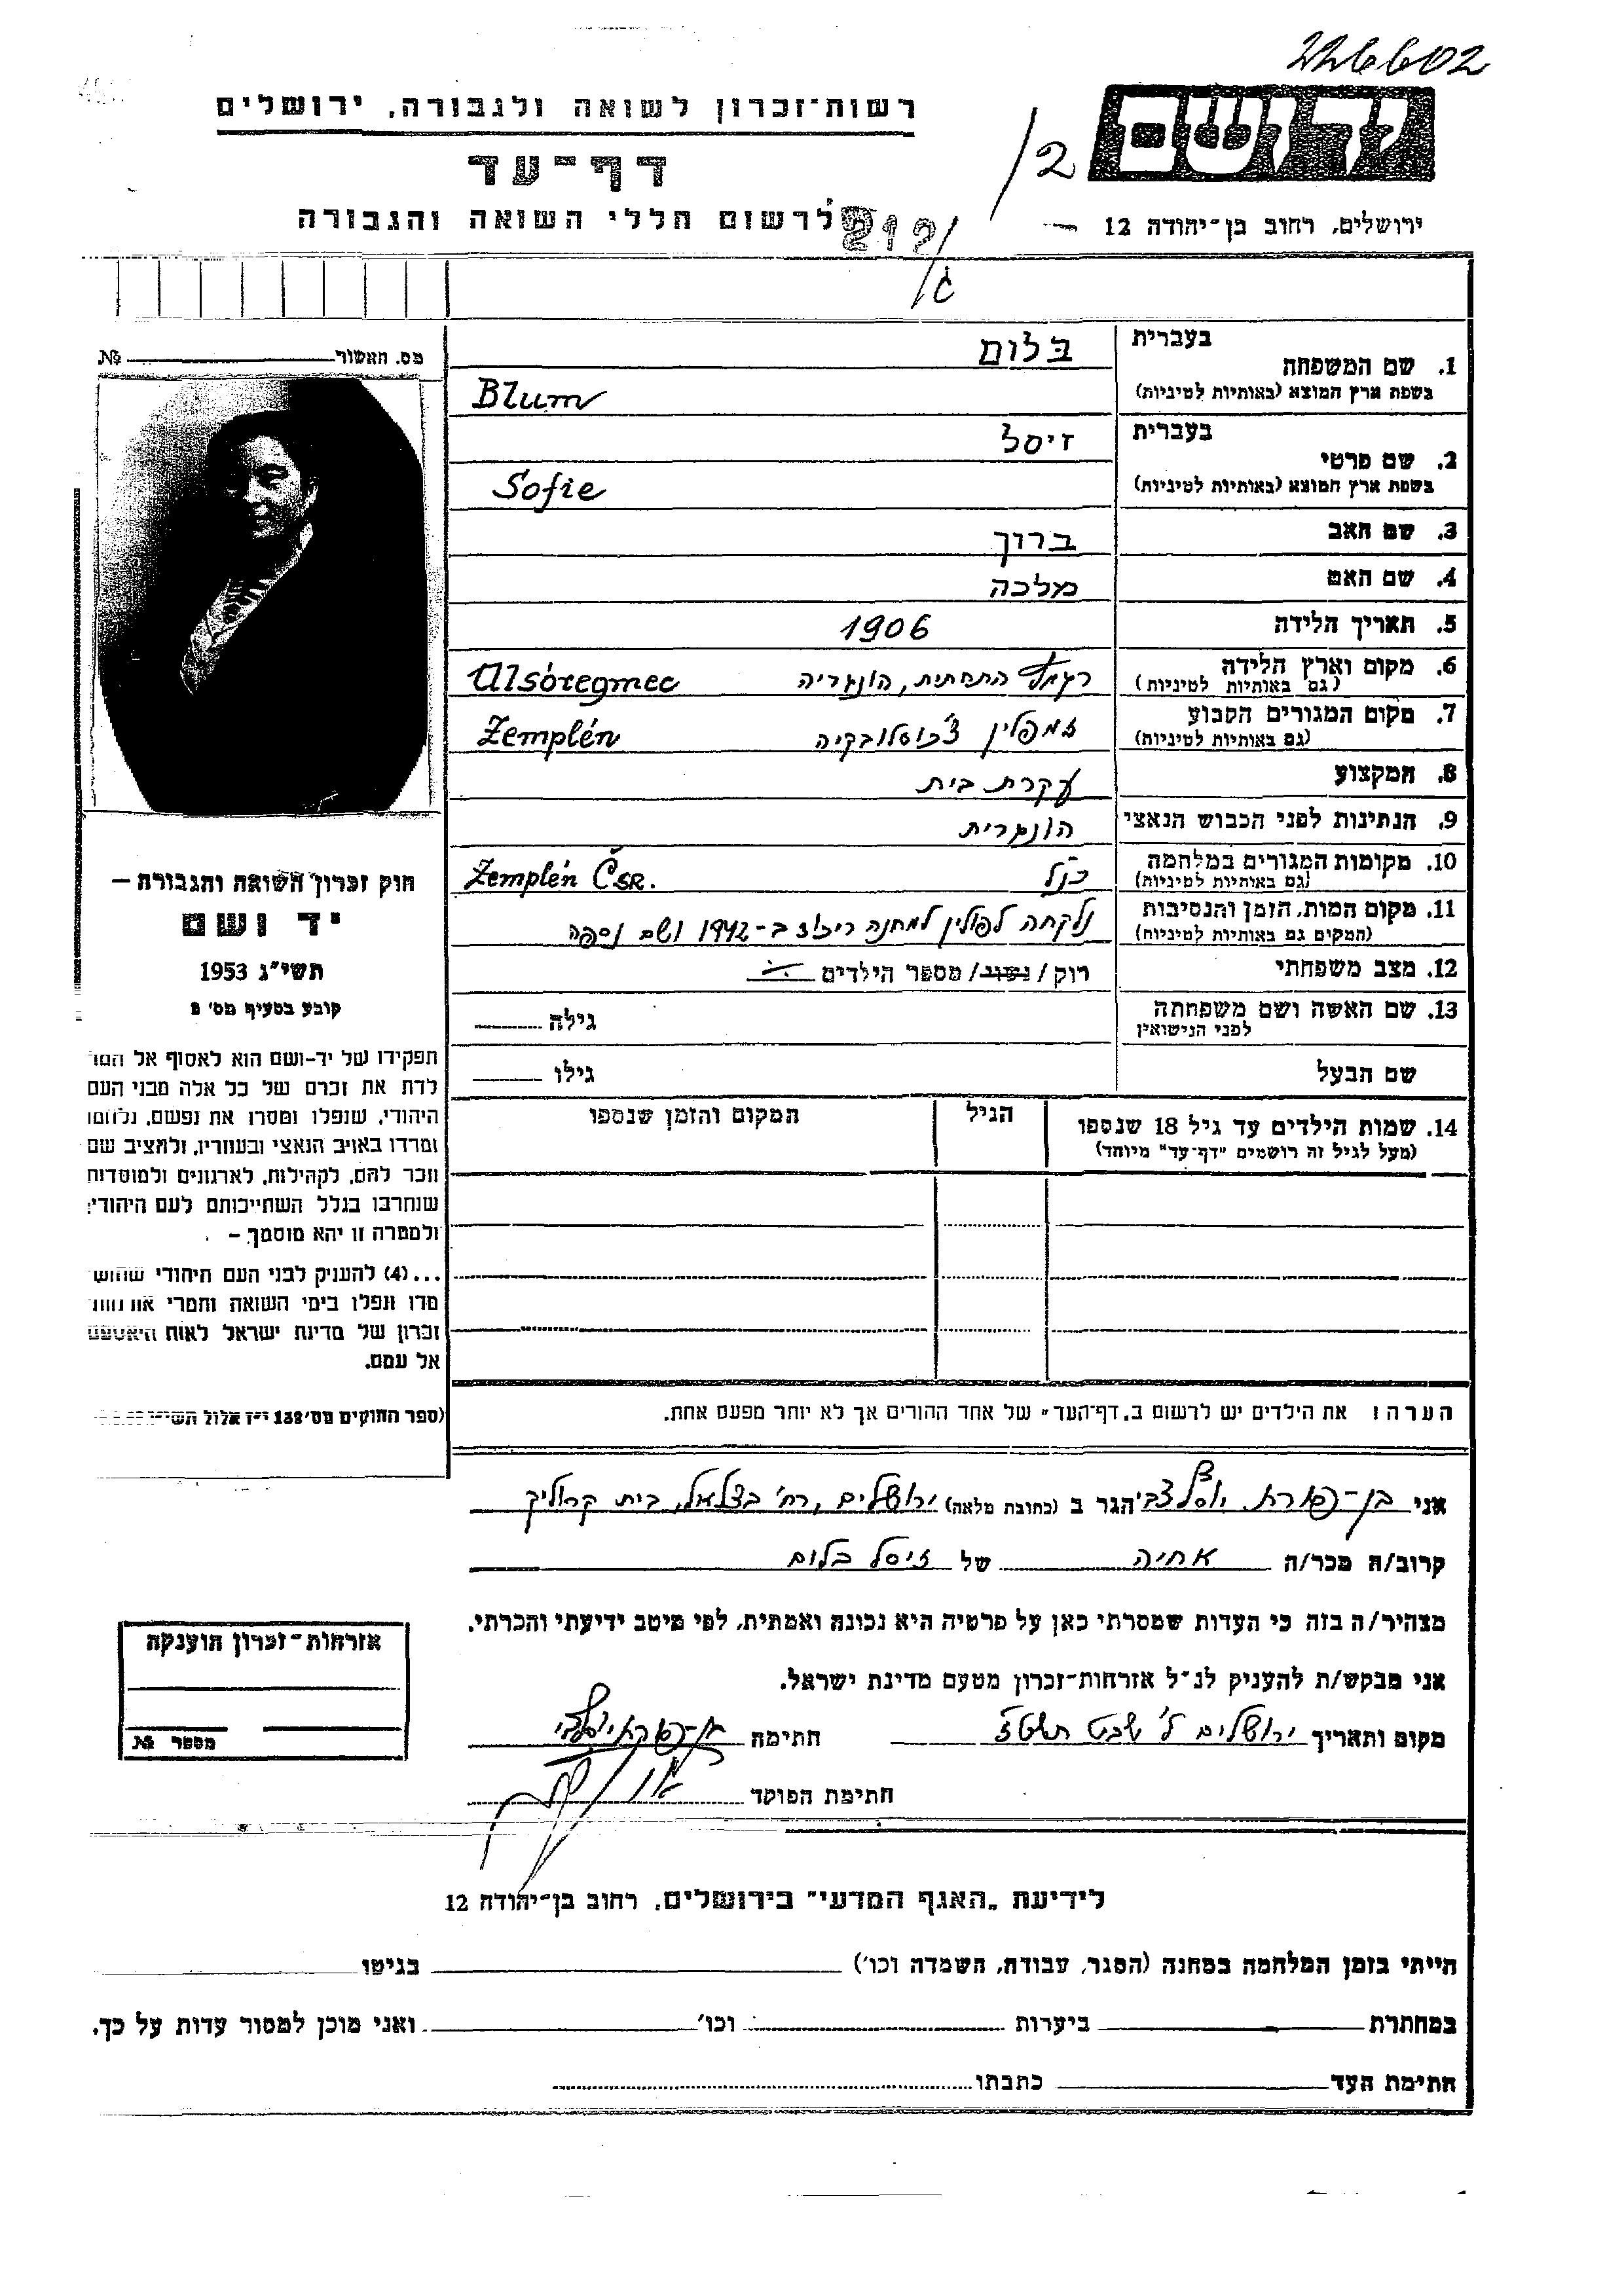 226602
רשות־זכרון לשואה ולגבורה, ירושלים
ידושם
דף־עד
2
לרשום חללי השואה והגבורה
212
ירושלים, רחוב בן־יהודה 12
ג/
מס. האשור №
1. שם המשפחה
בעברית
בלום
בשפת ארץ המוצא (באותיות לטיניות)
Blum
2. שם פרטי
בעברית
זיסל
בשפת ארץ המוצא (באותיות לטיניות)
Sofie
3. שם האב ברוך
4. שם האם מלכה
5. תאריך הלידה 1906
6. מקום וארץ הלידה
(גם באותיות לטיניות)
התחתית, הונגריה Alsóregmec
7. מקום המגורים הקבוע
(גם באותיות לטיניות)
זמפלין צ'כוסלובקיה Zemplén
8. המקצוע עקרת בית
9. הנתינות לפני הכבוש הנאצי הונגרית
10. מקומות המגורים במלחמה
(גם באותיות לטיניות)
כנ"ל Zemplén Čsr.
11. מקום המות, הזמן והנסיבות
(המקום גם באותיות לטיניות)
נלקחה לפולין למחנה ב־1942 ושם נספה
12. מצב משפחתי רוק/נשוי/ מספר הילדים
13. שם האשה ושם משפחתה
לפני הנישואין
גילה
שם הבעל גילו
14. שמות הילדים עד גיל 18 שנספו
(מעל לגיל זה רושמים "דף־עד" מיוחד)
הגיל
המקום והזמן שנספו
חוק זכרון השואה והגבורה –
יד ושם
תשי"ג 1953
קובע בסעיף מס' 2
תפקידו של יד-ושם הוא לאסוף אל המו
לדת את זכרם של כל אלה מבני העם
היהודי, שנפלו ומסרו את נפשם, נלחמו
ומרדו באויב הנאצי ובעוזריו, ולהציב שם
וזכר להם, לקהילות, לארגונים ולמוסדות
שנחרבו בגלל השתייכותם לעם היהודי;
ולמטרה זו יהא מוסמך –
...(4) להעניק לבני העם היהודי שהוש
מדו ונפלו בימי השואה והמרי אזרחות
זכרון של מדינת ישראל לאות היאספם
אל עמם.
(ספר החוקים מס' 132 י"ז אלול
הערה: את הילדים יש לרשום ב„דף־העד" של אחד ההורים אך לא יותר מפעם אחת.
אני בן-פורת יוסף צבי הגר ב (כתובת מלאה) ירושלים, רח' בצלאל, בית
קרוב/ה מכר/ה אחיה של זיסל בלום
מצהיר/ה בזה כי העדות שמסרתי כאן על פרטיה היא נכונה ואמתית, לפי מיטב ידיעתי והכרתי.
אני מבקש/ת להעניק לנ"ל אזרחות-זכרון מטעם מדינת ישראל.
מקום ותאריך ירושלים ל' שבט תשט"ז חתימה
חתימת הפוקד
אזרחות־זכרון הוענקה
מספר №
לידיעת „האגף המדעי" בירושלים, רחוב בן־יהודה 12
הייתי בזמן המלחמה במחנה (הסגר, עבודה, השמדה וכו') בגיטו
במחתרת ביערות וכו' ואני מוכן למסור עדות על כך.
חתימת העד כתבתו